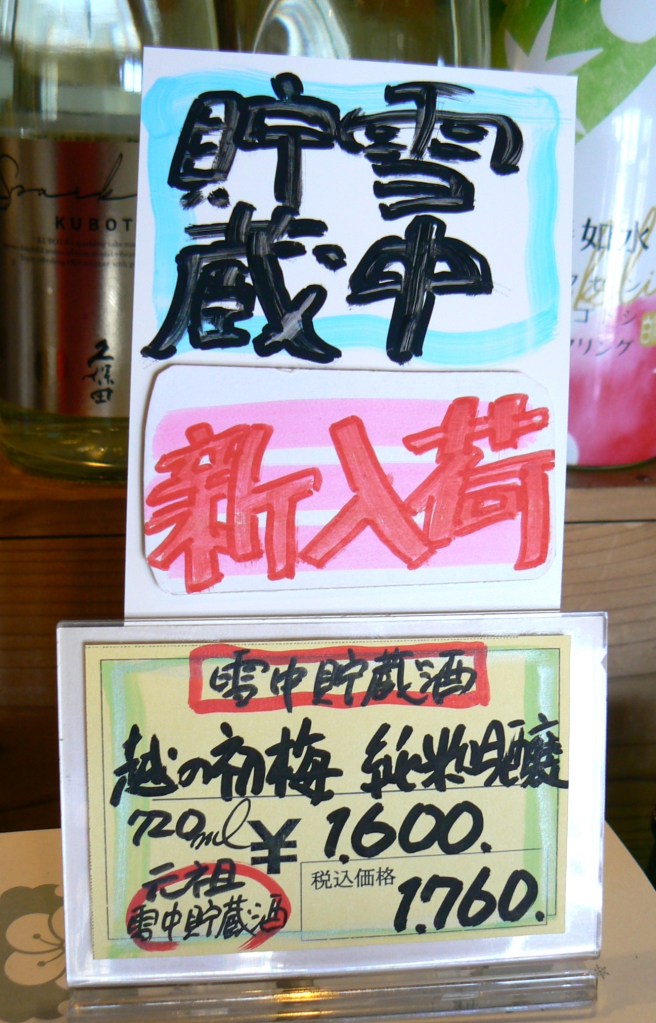 雪中
貯蔵
新入荷
雪中貯蔵酒
越の初梅 純米吟醸
720ml ¥1.600.
元祖
雪中貯蔵酒
税込価格 1.760.
KUBOT
久保田
如水
リング